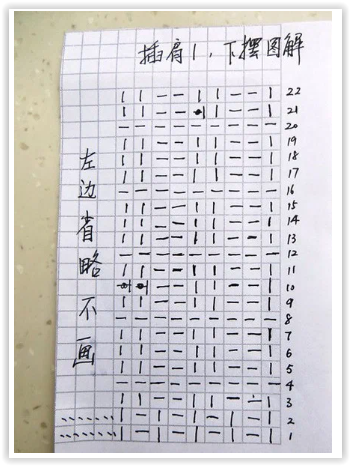 插肩1,下摆图解
左边省略不画
22
21
20
19
18
17
16
15
14
13
12
11
10
9
8
7
6
5
4
3
2
1